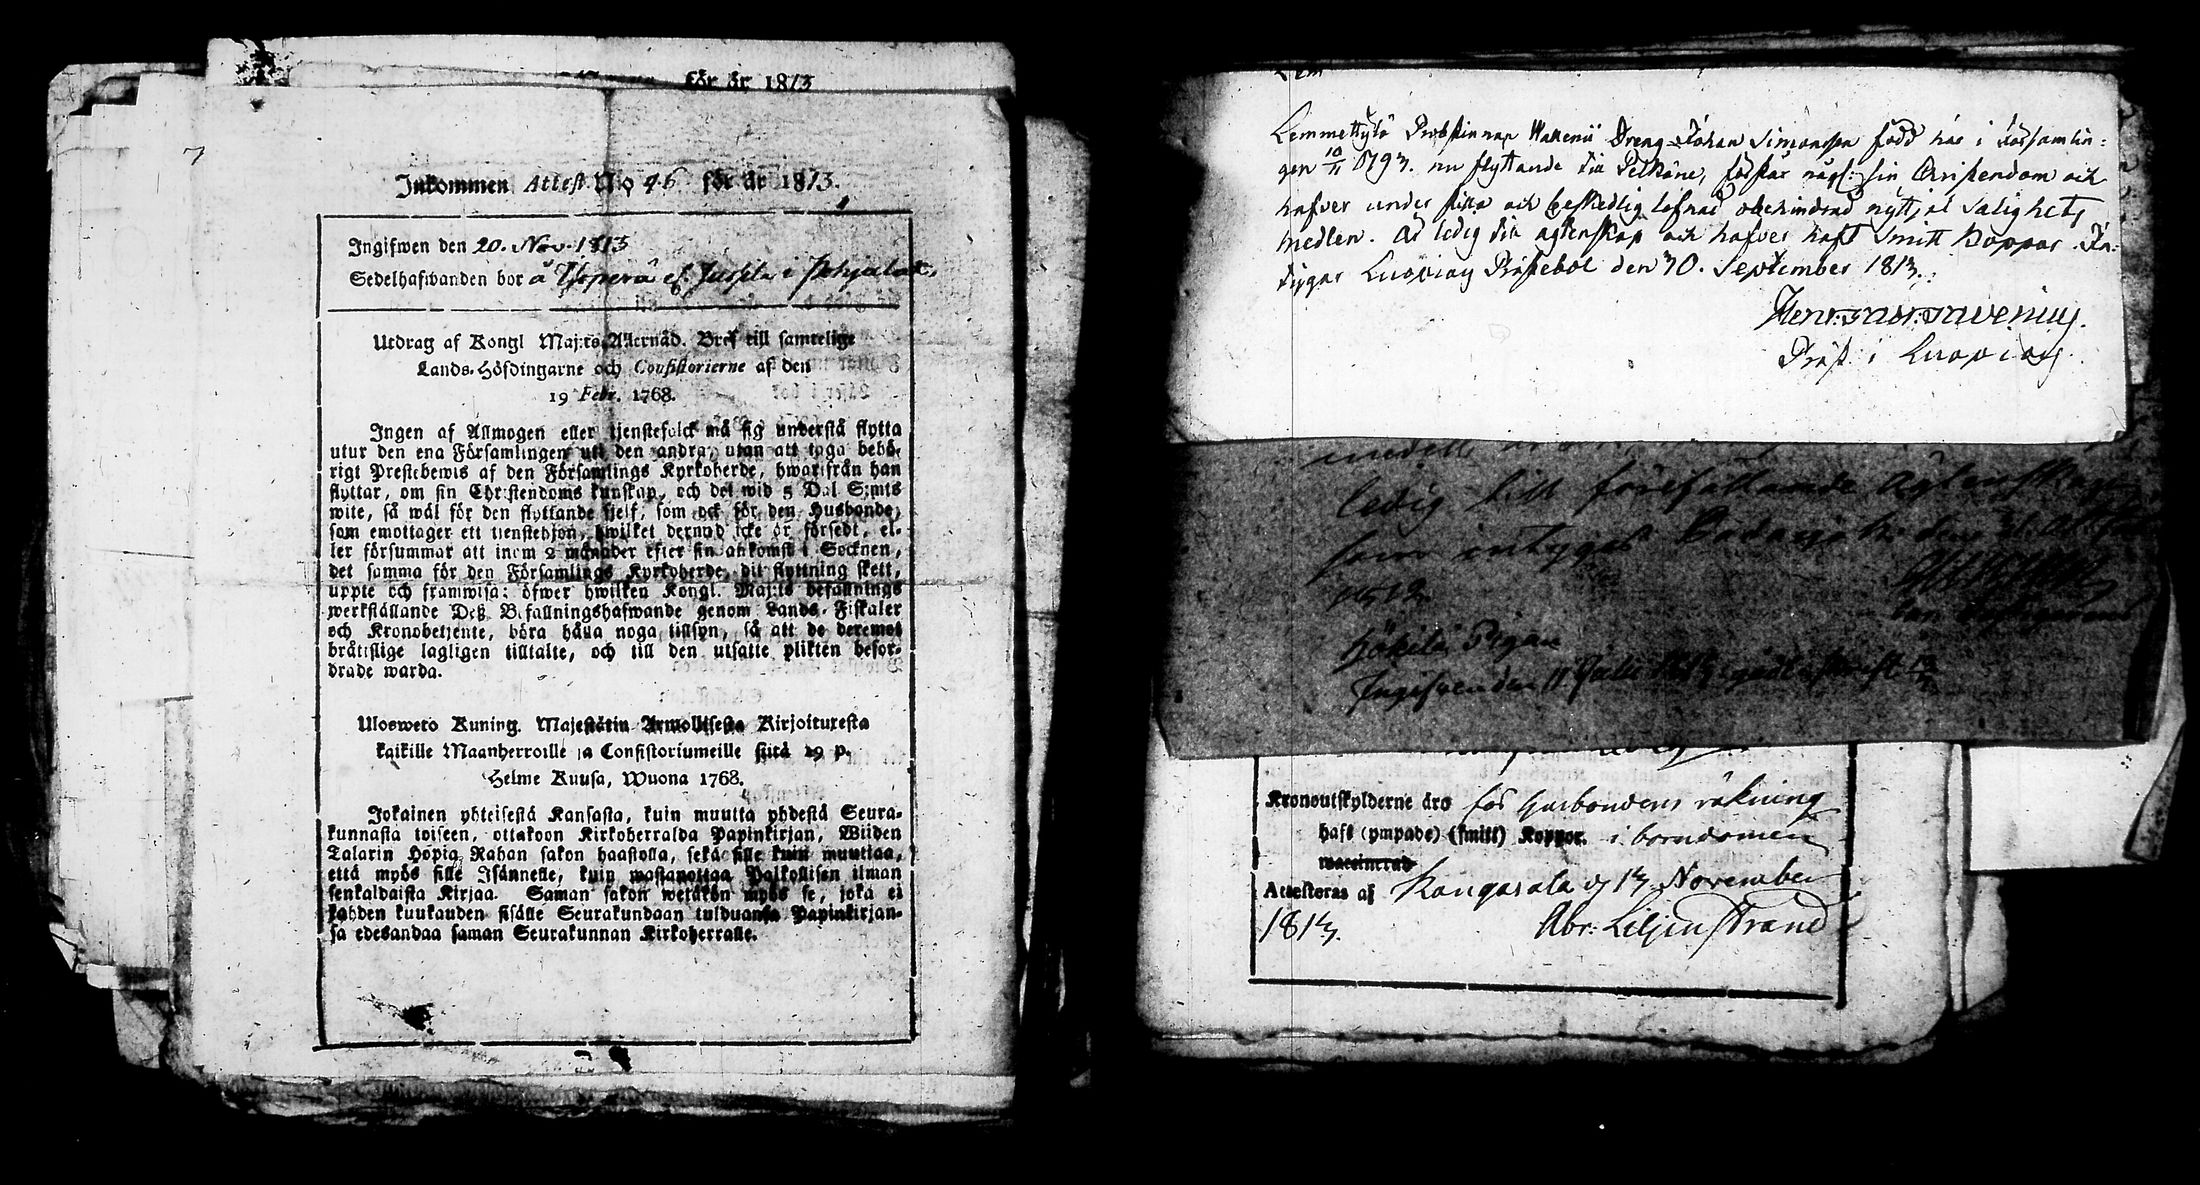 för år 1813
Inkommen Attest No 46 för år 1813.
Ingifwen den 20. Nov. 1813
Sedelhafwanden bor å
Utdrag af Kongl Maj:ts Allernåd. Bref till samtelige
Lands-Höfdingarne och Consistorierne af den
19 Febr. 1768.
Ingen af Allmogen eller tjenstefolck må sig understå flytta
utur den ena Församlingen uti den andra, utan att taga behö-
rigt Prestebewis af den Församlings Kyrkoherde, hwarifrån han
flyttar, om sin Christendoms kunskap, och det wid 5 Dal S:mts
wite, så wäl för den flyttande sjelf, som ock för den Husbonde,
som emottager ett tjenstehjon, hwilket dermed icke är försedt, el-
ler försummar att inom 2 månader efter sin ankomst i Socknen,
det samma för den Församlings Kyrkoherde, dit flyttning skett,
uppte och framwisa: öfwer hwilken Kongl. Maj:ts befallnings
werkställande Deß Befallningshafwande genom Lands-Fiskaler
och Kronobetjente, böra hålla noga tillsyn, så att de deremot
bråttslige lagligen tilltalte, och till den utsatte plikten befor-
drade warda.
Ulosweto Kuning. Majestätin Armollisesta Kirjoituxesta
kaikille Maanherroille ja Consistoriumeille siitä 19 p.
Helme Kuusa, Wuona 1768.
Jokainen yhteisestä Kansasta, kuin muutta yhdestä Seura-
kunnasta toiseen, ottakoon Kirkoherralda Papinkirjan, Wiiden
Talarin Hopia Rahan sakon haastolla, sekä sille kuin muuttaa,
että myös sille Isännelle, kuin wastanottaa Palkollisen ilman
senkaldaista Kirjaa. Saman sakon wetäkön myös se, joka ei
kahden kuukauden sisälle Seurakundaan tulduansa Papinkirjan-
sa edesandaa saman Seurakunnan Kirkoherralle.
Lemmettylä Probstinnan Dreng Johan Simonsson född här i Församlin-
gen 10/11 1793. nu flyttande till Pelkäne, förstår nögl: sin Christendom och
hafver under stilla och beskedlig lefnad obehindrad nyttjat Salighets
medlen. Är ledig till ägtenskap och hafver haft Smitt Koppor. In-
tygar Luopiois Prästebol den 30. September 1813.
Präst i Luopiois.
ledig till författande Ägtenskap
som intygas
1813
Pigan
Ingifven den 11 Julii 1813
Kronoutskylderne äro för husbondens räkning
haft (ympade) (smitt) Koppor. i barndomen
Attesteras af Kangasala d 13 November
1813. Abr: Liljenstrand